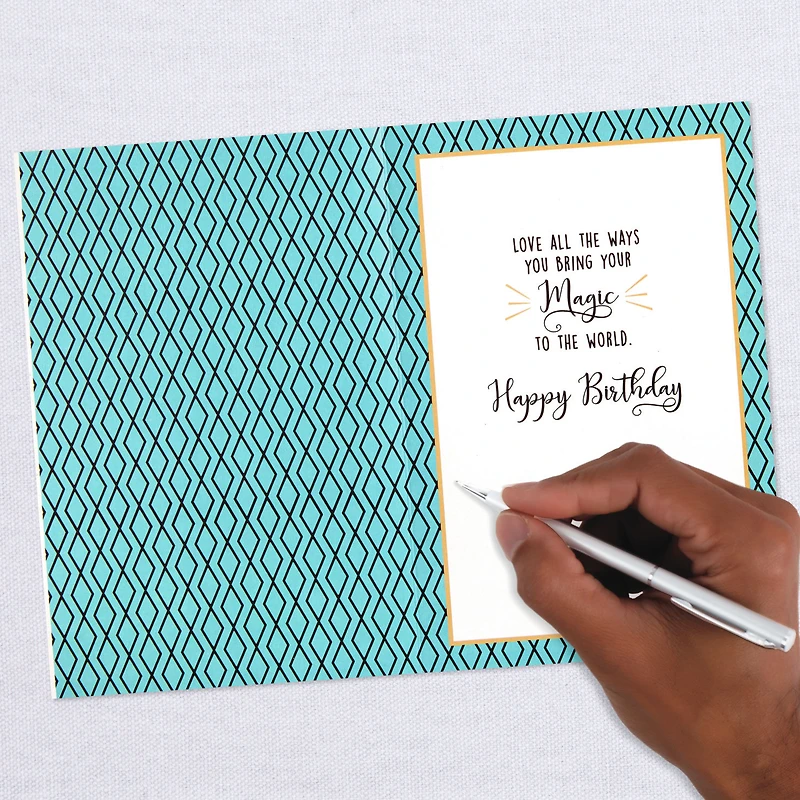 LOVE ALL THE WAYS
YOU BRING YOUR
Magic
TO THE WORLD.
Happy Birthday